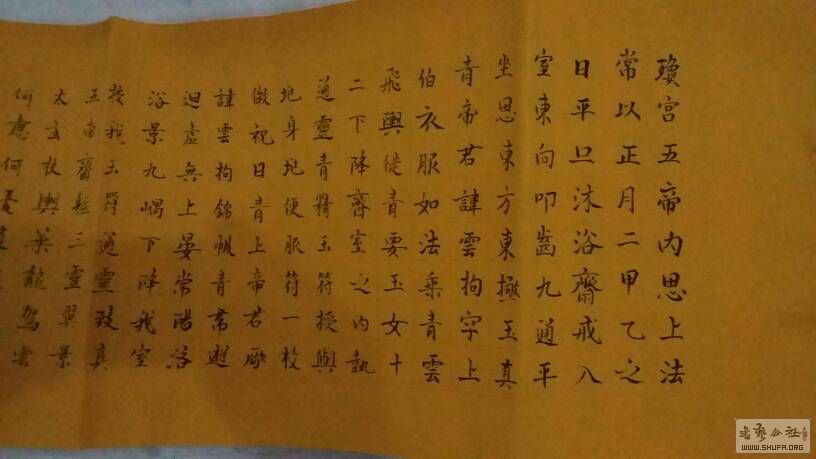 瓊宮五帝内思上法
常以正月二甲乙之
日平旦沐浴齋戒入
室東向叩齒九通平
坐思東方東極玉真
青帝君諱雲拘字上
伯衣服如法乘青雲
飛輿從青要玉女十
二下降齋室之内執
通靈青精玉符授與
地身地便服符一枚
微祝曰青上帝君厥
諱雲拘錦帔青帬遊
迴虛無上晏常陽洛
浴景九嵎下降我室
授我玉符通靈致真
五帝齋軿三靈翼景
太玄扶輿英龍駕雲
何慮何憂
WWW.SHUFA.ORG